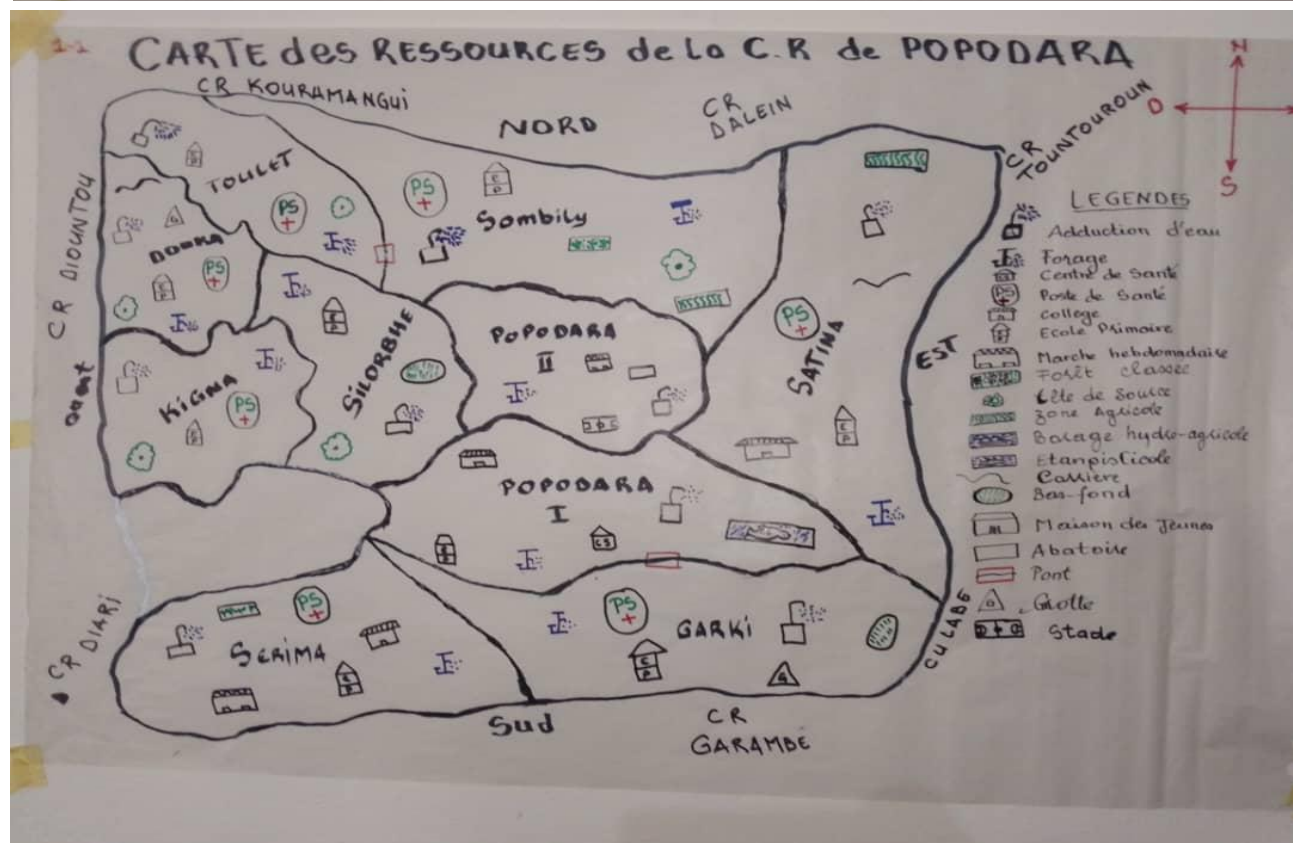 1-1
CARTE des RESSOURCES de la C.R de POPODARA
CR KOURAMANGUI
NORD
CR DALEIN
CR TOUNTOUROUN
N
O
S
CR DIOUNTOU
TOULET
PS
PS
EP
Sombily
DONKA
G
PS
POPODARA
II
SILORBHE
KIGNA
PS
SATINA
PS
EP
EST
POPODARA
I
EP
CS
CR DIARI
SERIMA
PS
EP
GARKI
PS
EP
G
CU LABE
Sud
CR
GARAMBE
LEGENDES
Adduction d'eau
Forage
Centre de Santé
PS Poste de Santé
college
Ecole Primaire
Marche hebdomadaire
Forêt classée
Tête de Source
Zone Agricole
Barage hydro-agricole
Etanpisticole
Carriere
Bas-fond
m Maison des Jeunes
Abatoire
Pont
G Grotte
Stade